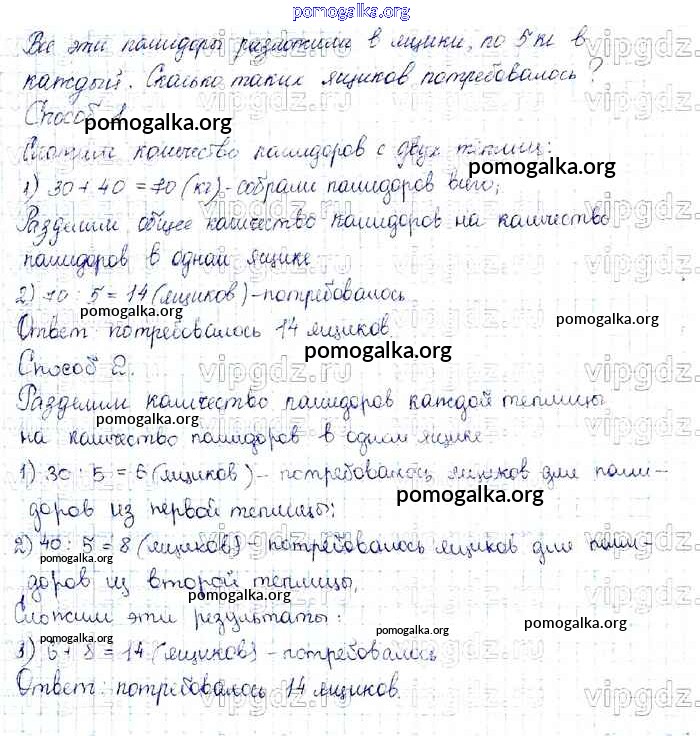 pomogalka.org
Все эти помидоры разложили в ящики, по 5 кг в
каждый. Сколько таких ящиков потребовалось?
Способ 1.
pomogalka.org
Сложим количество помидоров с двух теплиц:
pomogalka.org
1) 30 + 40 = 70 (кг) - собрали помидоров всего;
Разделим общее количество помидоров на количество
помидоров в одном ящике
2) 70 : 5 = 14 (ящиков) - потребовалось
pomogalka.org
pomogalka.org
Ответ потребовалось 14 ящиков
pomogalka.org
Способ 2.
vipgdz.ru
Разделим количество помидоров каждой теплицы
pomogalka.org
на количество помидоров в одном ящике
1) 30 : 5 = 6 (ящиков) - потребовалось ящиков для поми-
pomogalka.org
доров из первой теплицы;
2) 40 : 5 = 8 (ящиков) - потребовалось ящиков для поми-
pomogalka.org
доров из второй теплицы,
pomogalka.org
Сложим эти результаты:
pomogalka.org
pomogalka.org
3) 6 + 8 = 14 (ящиков) - потребовалось
Ответ: потребовалось 14 ящиков.